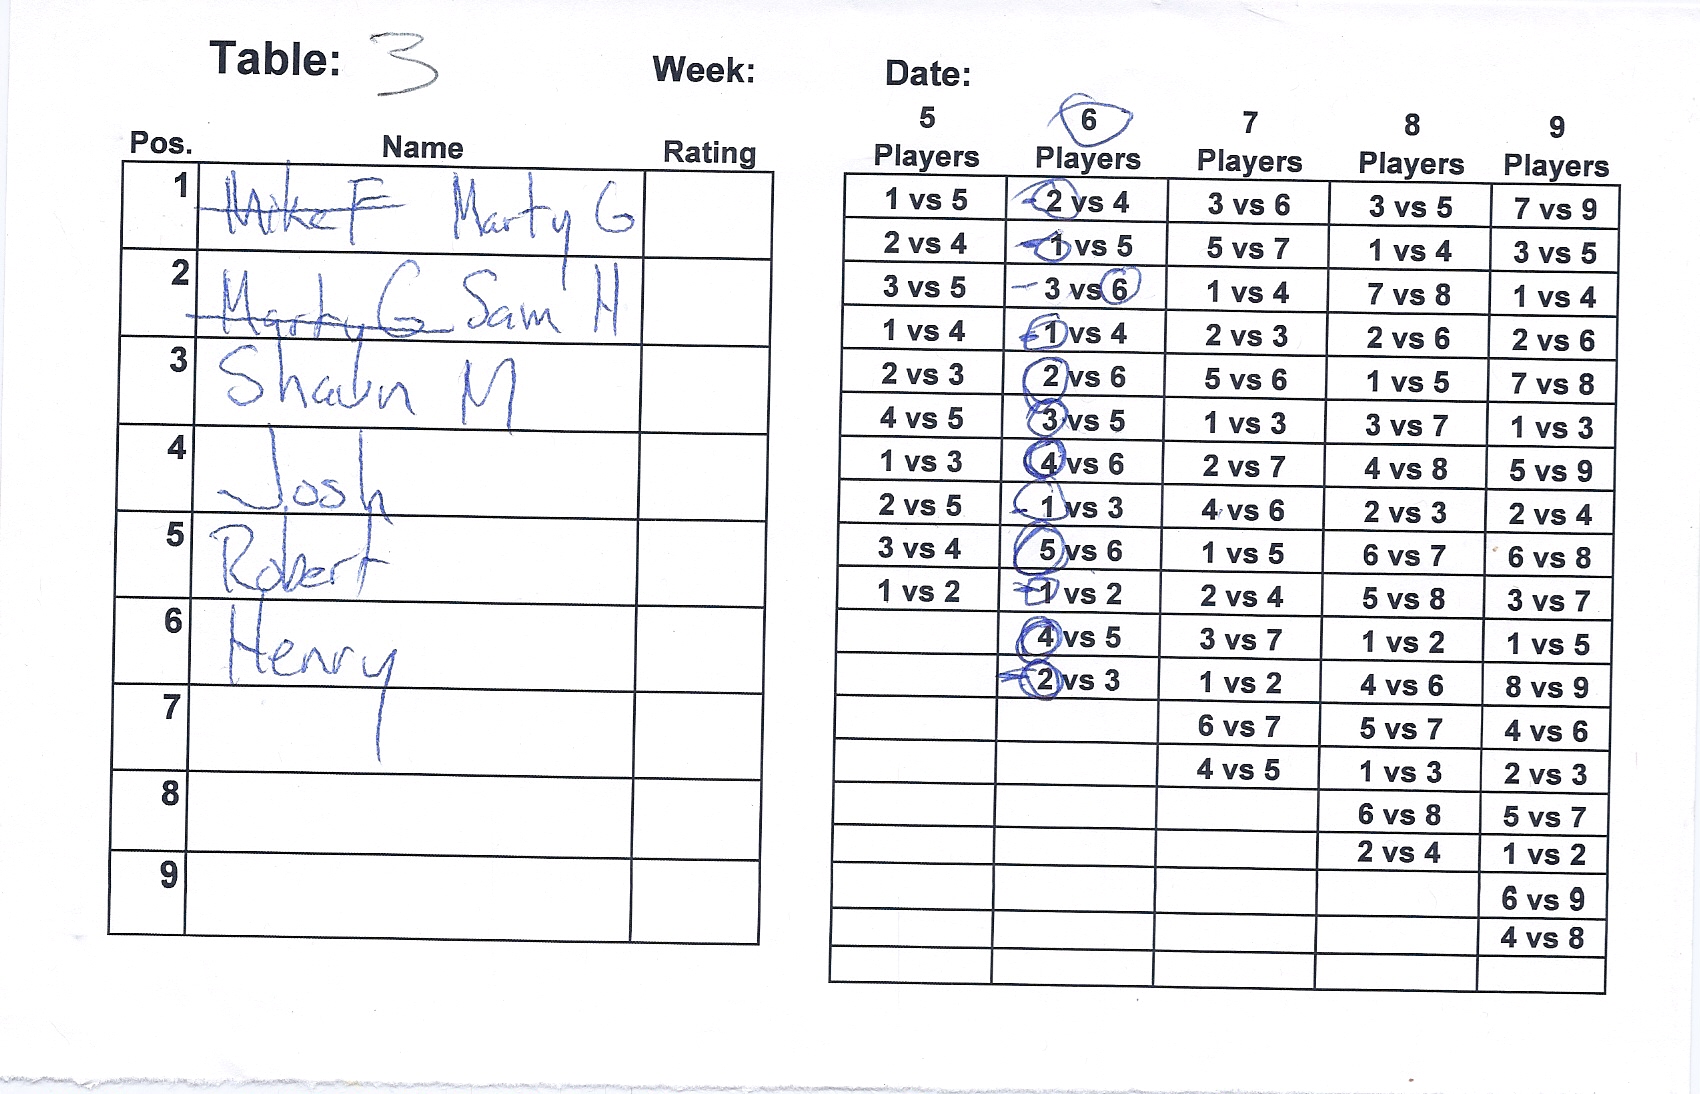 Table: 3 Week: Date:
5 6 7 8 9
Pos. Name Rating Players Players Players Players Players
1 Mike F Marty G
2 Marty G Sam H
3 Shawn M
4 Josh
5 Robert
6 Henry
7
8
9
1 vs 5 2 vs 4 3 vs 6 3 vs 5 7 vs 9
2 vs 4 1 vs 5 5 vs 7 1 vs 4 3 vs 5
3 vs 5 3 vs 6 1 vs 4 7 vs 8 1 vs 4
1 vs 4 1 vs 4 2 vs 3 2 vs 6 2 vs 6
2 vs 3 2 vs 6 5 vs 6 1 vs 5 7 vs 8
4 vs 5 3 vs 5 1 vs 3 3 vs 7 1 vs 3
1 vs 3 4 vs 6 2 vs 7 4 vs 8 5 vs 9
2 vs 5 1 vs 3 4 vs 6 2 vs 3 2 vs 4
3 vs 4 5 vs 6 1 vs 5 6 vs 7 6 vs 8
1 vs 2 1 vs 2 2 vs 4 5 vs 8 3 vs 7
4 vs 5 3 vs 7 1 vs 2 1 vs 5
2 vs 3 1 vs 2 4 vs 6 8 vs 9
6 vs 7 5 vs 7 4 vs 6
4 vs 5 1 vs 3 2 vs 3
6 vs 8 5 vs 7
2 vs 4 1 vs 2
6 vs 9
4 vs 8